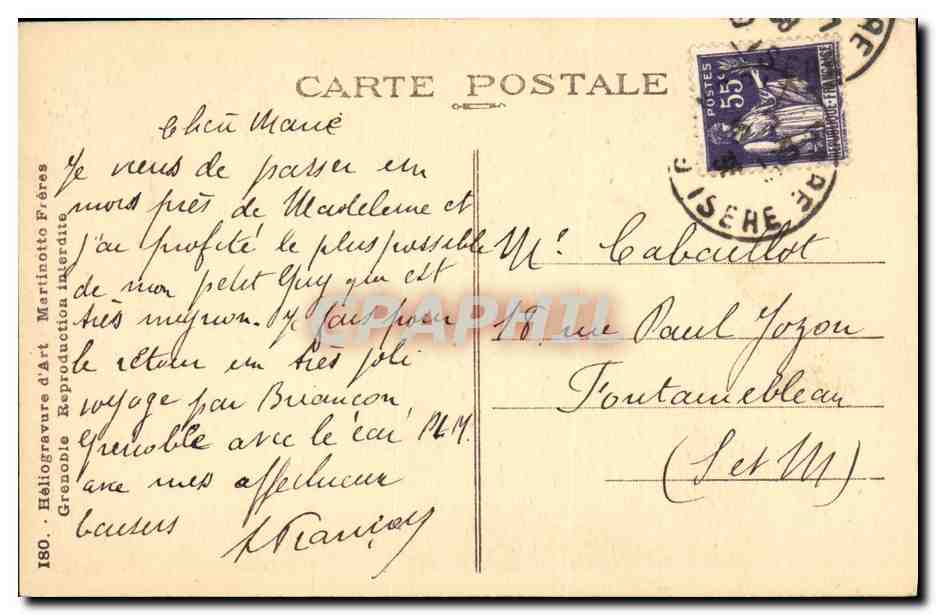 CARTE POSTALE
POSTES
55c
REPUBLIQUE FRANÇAISE
ISERE
Cher Marie
Je viens de passer un
mois près de Madeleine et
j'ai profité le plus possible
de mon petit Guy qui est
très mignon. Je fais pour
le retour un très joli
voyage par Briançon
Grenoble avec le car PLM.
avec mes affectueux
baisers
Mr Cabaillot
18, rue Paul Jozon
Fontainebleau
(S et M)
180. . Héliogravure d'Art Martinotto Frères
Grenoble Reproduction interdite
CPAPHIL